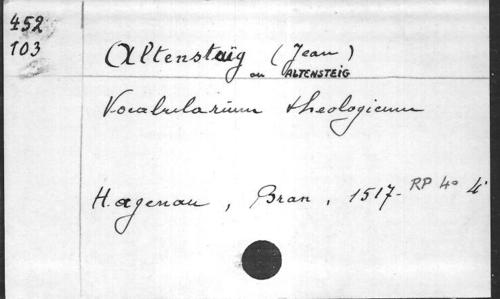 452
103
Altenstaig (Jean)
ou ALTENSTEIG
Vocabularium theologicum
Hagenau, Bran, 1517. RP 4° 4